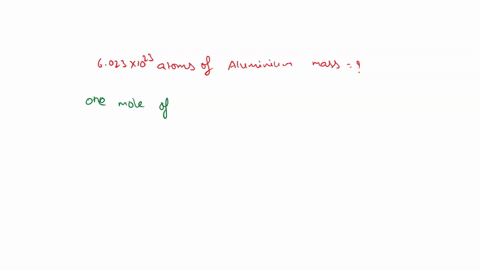 6.023 × 10²³ atoms of Aluminium mass = ?
one mole of